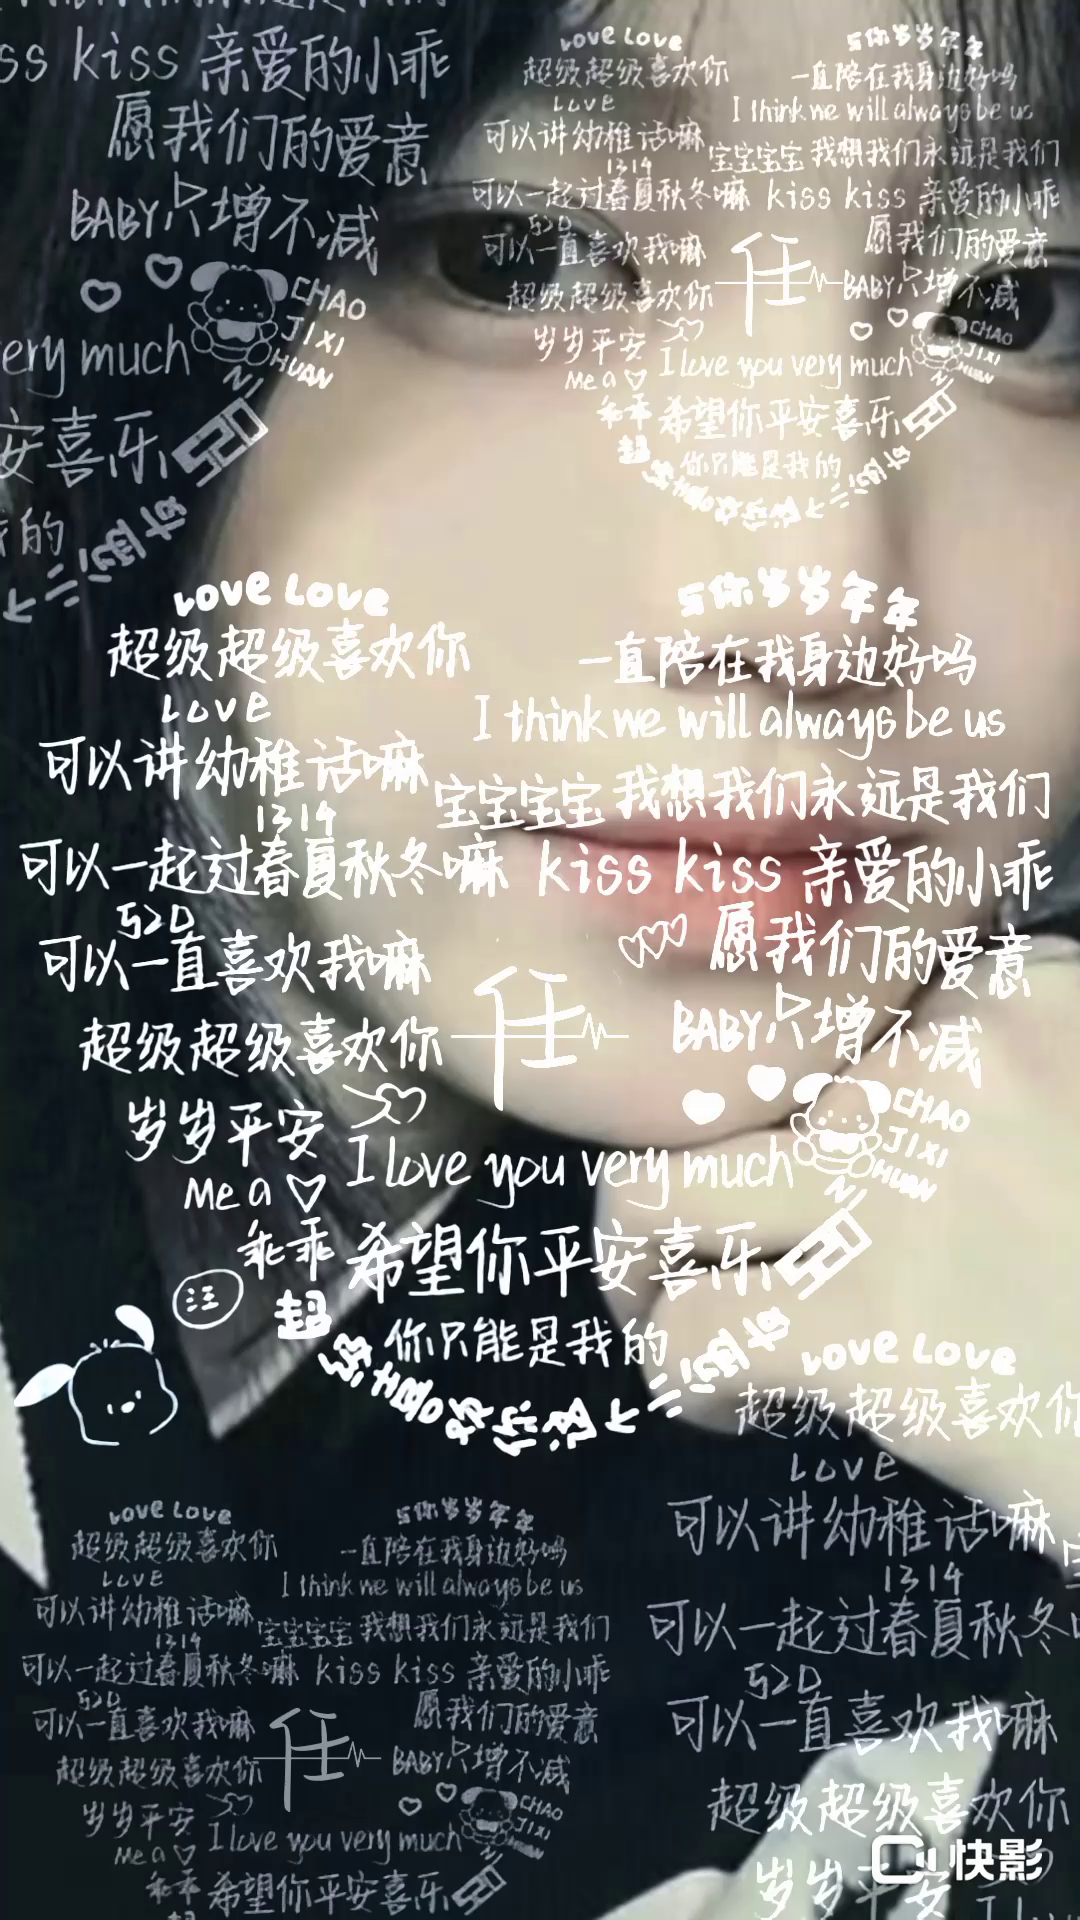 ss kiss 亲爱的小乖
愿我们的爱意
BABY只增不减
CHAO
JIXI
HUAN
NI
ery much
安喜乐
的
Love Love
超级超级喜欢你
Love
可以讲幼稚话嘛
1314
可以一起过春夏秋冬嘛
520
可以一直喜欢我嘛
超级超级喜欢你
岁岁平安
Me a
乖乖
与你岁岁年年
一直陪在我身边好吗
I think we will always be us
宝宝宝宝 我想我们永远是我们
kiss kiss 亲爱的小乖
愿我们的爱意
任
BABY只增不减
CHAO
JIXI
HUAN
NI
I love you very much
希望你平安喜乐
你只能是我的
Love Love
与你岁岁年年
超级超级喜欢你
一直陪在我身边好吗
Love
I think we will always be us
可以讲幼稚话嘛
宝宝宝宝 我想我们永远是我们
1314
可以一起过春夏秋冬嘛 kiss kiss 亲爱的小乖
520
可以一直喜欢我嘛
愿我们的爱意
超级超级喜欢你
任
BABY只增不减
岁岁平安
CHAO
JIXI
HUAN
NI
I love you very much
Me a
乖乖 希望你平安喜乐
汪
超
你只能是我的
Love Love
超级超级喜欢你
Love
可以讲幼稚话嘛
1314
可以一起过春夏秋冬
520
可以一直喜欢我嘛
超级超级喜欢你
岁岁平安
Love Love
与你岁岁年年
超级超级喜欢你
一直陪在我身边好吗
Love
I think we will always be us
可以讲幼稚话嘛
宝宝宝宝 我想我们永远是我们
1314
可以一起过春夏秋冬嘛 kiss kiss 亲爱的小乖
520
可以一直喜欢我嘛
愿我们的爱意
超级超级喜欢你
任
BABY只增不减
岁岁平安
CHAO
JIXI
HUAN
I love you very much
Me a
乖乖 希望你平安喜乐
快影